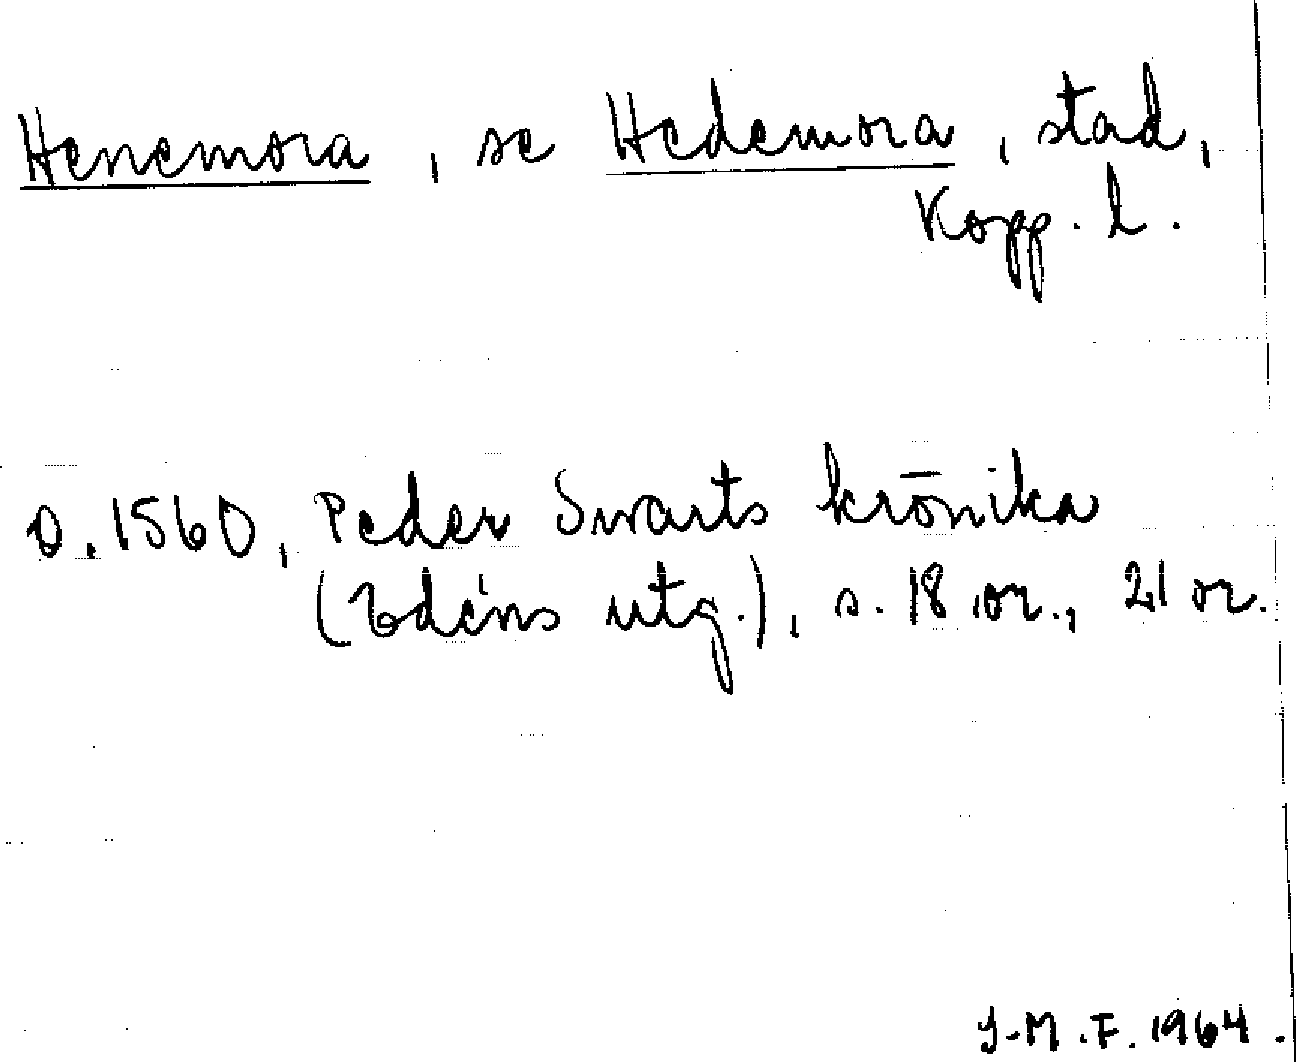 Henemora, se Hedemora, stad,
Kopp. l.
o. 1560, Peder Swarts krönika
(Edéns utg.), s. 18 or., 21 or.
J-M.F. 1964.